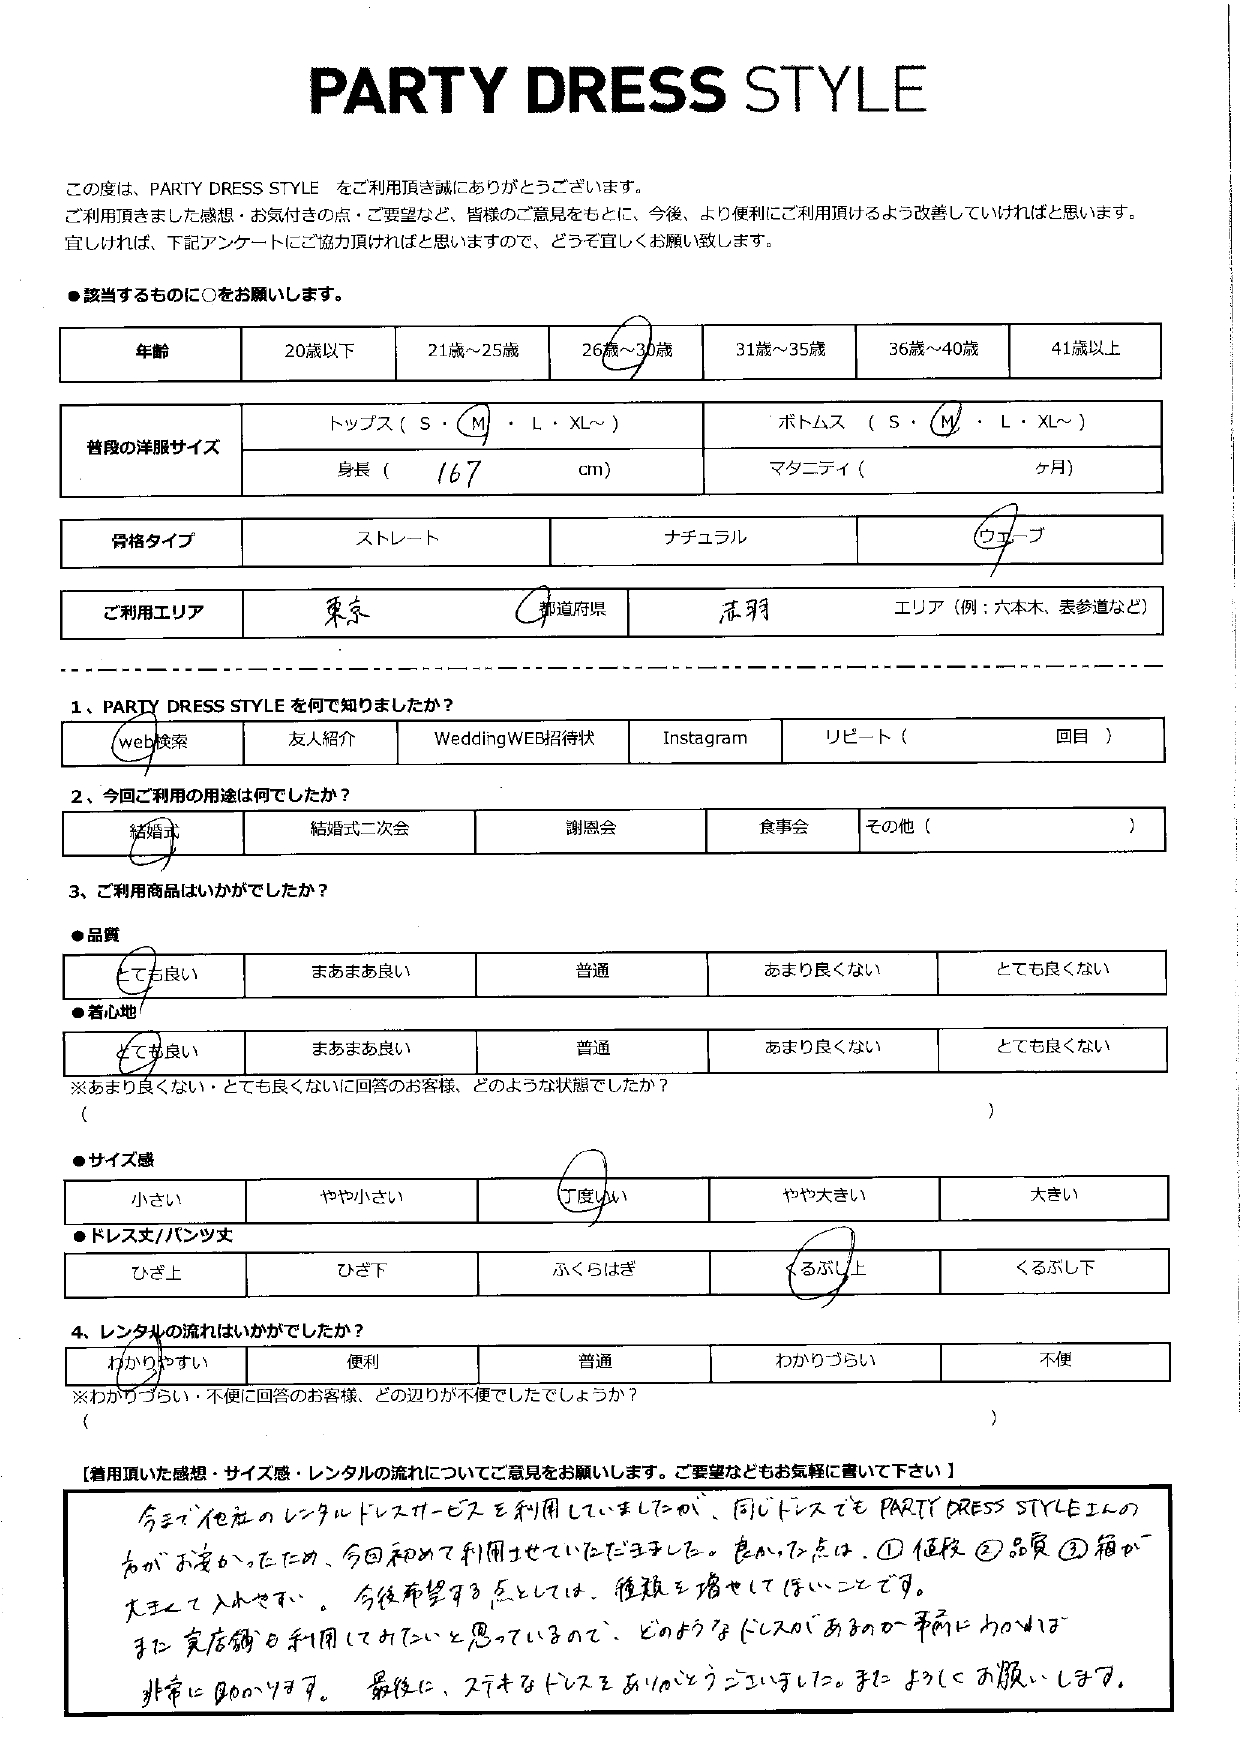 PARTY DRESS STYLE
この度は、PARTY DRESS STYLE をご利用頂き誠にありがとうございます。
ご利用頂きました感想・お気付きの点・ご要望など、皆様のご意見をもとに、今後、より便利にご利用頂けるよう改善していければと思います。
宜しければ、下記アンケートにご協力頂ければと思いますので、どうぞ宜しくお願い致します。
●該当するものに○をお願いします。
年齢 20歳以下 21歳～25歳 26歳～30歳 31歳～35歳 36歳～40歳 41歳以上
普段の洋服サイズ
トップス ( S ・ M ・ L ・ XL～ ) ボトムス ( S ・ M ・ L ・ XL～ )
身長 ( 167 cm) マタニティ ( ヶ月)
骨格タイプ ストレート ナチュラル ウェーブ
ご利用エリア 東京 都道府県 赤羽 エリア（例：六本木、表参道など）
1、PARTY DRESS STYLE を何で知りましたか？
web検索 友人紹介 WeddingWEB招待状 Instagram リピート（ 回目 ）
2、今回ご利用の用途は何でしたか？
結婚式 結婚式二次会 謝恩会 食事会 その他（ ）
3、ご利用商品はいかがでしたか？
●品質
とても良い まあまあ良い 普通 あまり良くない とても良くない
●着心地
とても良い まあまあ良い 普通 あまり良くない とても良くない
※あまり良くない・とても良くないに回答のお客様、どのような状態でしたか？
（ ）
●サイズ感
小さい やや小さい 丁度いい やや大きい 大きい
●ドレス丈/パンツ丈
ひざ上 ひざ下 ふくらはぎ くるぶし上 くるぶし下
4、レンタルの流れはいかがでしたか？
わかりやすい 便利 普通 わかりづらい 不便
※わかりづらい・不便に回答のお客様、どの辺りが不便でしたでしょうか？
（ ）
【着用頂いた感想・サイズ感・レンタルの流れについてご意見をお願いします。ご要望などもお気軽に書いて下さい 】
今まで他社のレンタルドレスサービスを利用していましたが、同じドレスでも PARTY DRESS STYLEさんの
方がお安かったため、今回初めて利用させていただきました。良かった点は、①値段 ②品質 ③箱が
大きくて入れやすい。今後希望する点としては、種類を増やしてほしいことです。
また実店舗も利用してみたいと思っているので、どのようなドレスがあるのか事前にわかれば
非常に助かります。 最後に、ステキなドレスをありがとうございました。またよろしくお願いします。